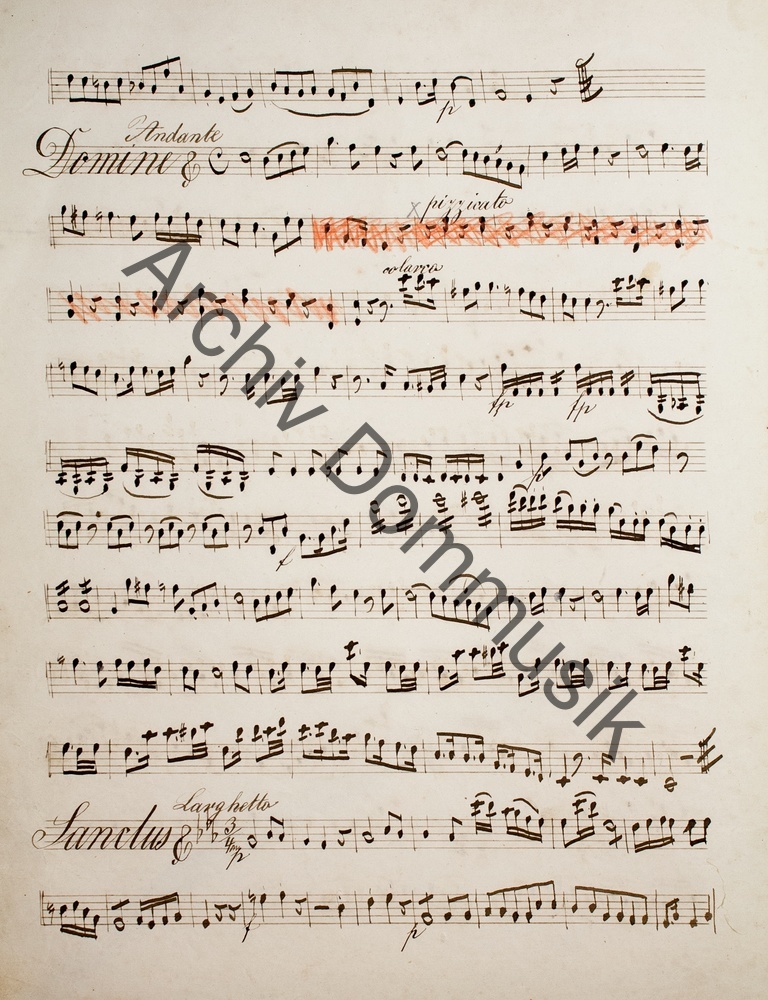 p
Andante
Domine
pizzicato
colarco
fp fp
p
f
Larghetto
Sanctus 3/4 p
f p
Archiv Dommusik